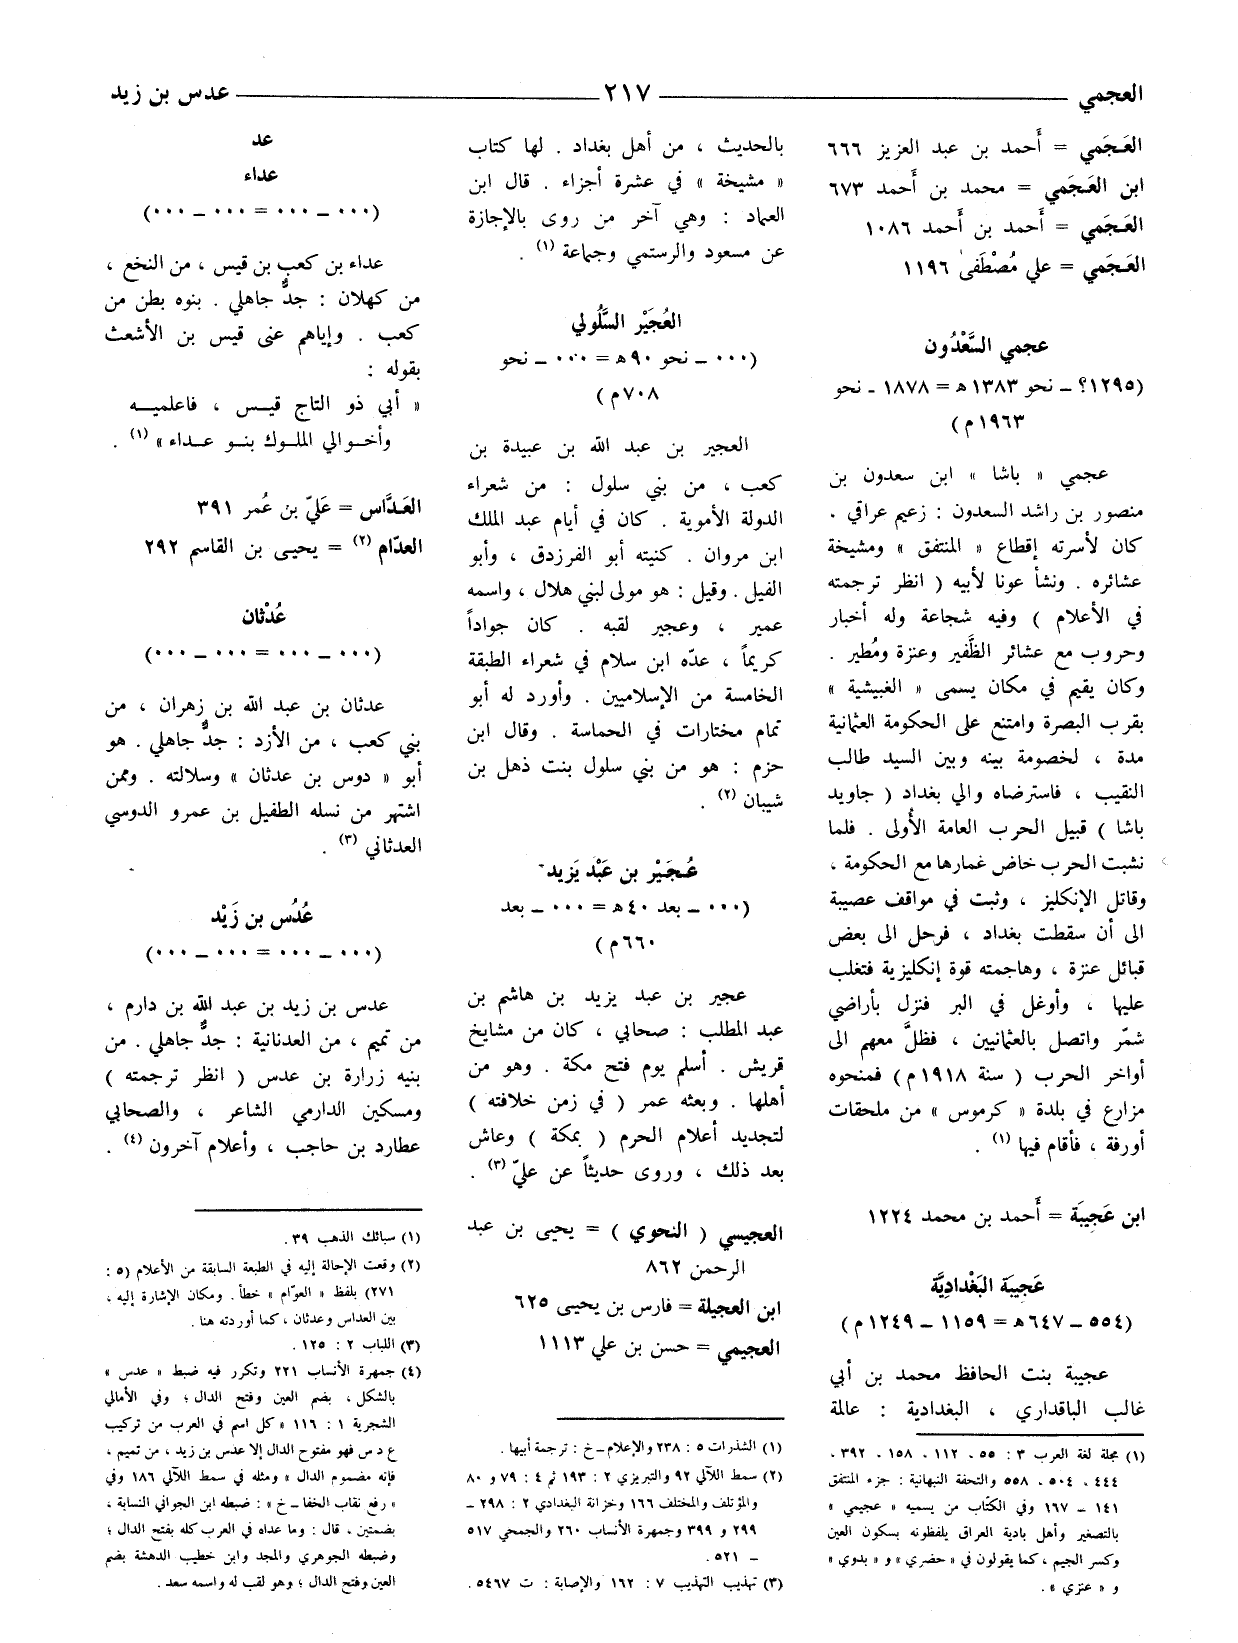 العجمي
٢١٧
عدس بن زيد
العَجَمي = أَحمد بن عبد العزيز ٦٦٦
ابن العَجَمي = محمد بن أَحمد ٦٧٣
العَجَمي = أَحمد بن أَحمد ١٠٨٦
العَجَمي = علي مُصْطَفىٰ ١١٩٦
عجمي السَّعْدُون
(١٢٩٥؟ ـ نحو ١٣٨٣ هـ = ١٨٧٨ ـ نحو
١٩٦٣ م)
عجمي « باشا » ابن سعدون بن
منصور بن راشد السعدون : زعيم عراقي .
كان لأسرته إقطاع « المنتفق » ومشيخة
عشائره . ونشأ عونا لأبيه ( انظر ترجمته
في الأعلام ) وفيه شجاعة وله أخبار
وحروب مع عشائر الظَّفير وعنزة ومُطير .
وكان يقيم في مكان يسمى « الغبيشية »
بقرب البصرة وامتنع على الحكومة العثمانية
مدة ، لخصومة بينه وبين السيد طالب
النقيب ، فاسترضاه والي بغداد ( جاويد
باشا ) قبيل الحرب العامة الأُولى . فلما
نشبت الحرب خاض غمارها مع الحكومة ،
وقاتل الإنكليز ، وثبت في مواقف عصيبة
الى أن سقطت بغداد ، فرحل الى بعض
قبائل عنزة ، وهاجمته قوة إنكليزية فتغلب
عليها ، وأوغل في البر فنزل بأراضي
شمّر واتصل بالعثمانيين ، فظلَّ معهم الى
أواخر الحرب ( سنة ١٩١٨ م ) فمنحوه
مزارع في بلدة « كرموس » من ملحقات
أورفة ، فأقام فيها (١) .
ابن عَجيبَة = أَحمد بن محمد ١٢٢٤
عَجيبَة البَغْدادِيَّة
(٥٥٤ ـ ٦٤٧ هـ = ١١٥٩ ـ ١٢٤٩ م)
عجيبة بنت الحافظ محمد بن أبي
غالب الباقداري ، البغدادية : عالمة
(١) مجلة لغة العرب ٣ : ٥٥ ، ١١٢ ، ١٥٨ ، ٣٩٢ ،
٤٤٤ ، ٥٠٤ ، ٥٥٨ والتحفة النبهانية : جزء المنتفق
١٤١ ـ ١٦٧ وفي الكتّاب من يسميه « عجيمي »
بالتصغير وأهل بادية العراق يلفظونه بسكون العين
وكسر الجيم ، كما يقولون في « حضري » و « بدوي »
و « عنزي » .
بالحديث ، من أهل بغداد . لها كتاب
« مشيخة » في عشرة أجزاء . قال ابن
العماد : وهي آخر من روى بالإجازة
عن مسعود والرستمي وجماعة (١) .
العُجَيْر السَّلُولي
(٠٠٠ ـ نحو ٩٠ هـ = ٠٠٠ ـ نحو
٧٠٨ م)
العجير بن عبد الله بن عبيدة بن
كعب ، من بني سلول : من شعراء
الدولة الأموية . كان في أيام عبد الملك
ابن مروان . كنيته أبو الفرزدق ، وأبو
الفيل . وقيل : هو مولى لبني هلال ، واسمه
عمير ، وعجير لقبه . كان جواداً
كريماً ، عدّه ابن سلام في شعراء الطبقة
الخامسة من الإسلاميين . وأورد له أبو
تمام مختارات في الحماسة . وقال ابن
حزم : هو من بني سلول بنت ذهل بن
شيبان (٢) .
عُجَيْر بن عَبْد يَزيد
(٠٠٠ ـ بعد ٤٠ هـ = ٠٠٠ ـ بعد
٦٦٠ م)
عجير بن عبد يزيد بن هاشم بن
عبد المطلب : صحابي ، كان من مشايخ
قريش . أسلم يوم فتح مكة . وهو من
أهلها . وبعثه عمر ( في زمن خلافته )
لتجديد أعلام الحرم ( بمكة ) وعاش
بعد ذلك ، وروى حديثاً عن عليّ (٣) .
العجيسي ( النحوي ) = يحيى بن عبد
الرحمن ٨٦٢
ابن العجيلة = فارس بن يحيى ٦٢٥
العجيمي = حسن بن علي ١١١٣
(١) الشذرات ٥ : ٢٣٨ والإعلام ـ خ : ترجمة أبيها .
(٢) سمط اللآلي ٩٢ والتبريزي ٢ : ١٩٣ ثم ٤ : ٧٩ و ٨٠
والمؤتلف والمختلف ١٦٦ وخزانة البغدادي ٢ : ٢٩٨ ـ
٢٩٩ و ٣٩٩ وجمهرة الأنساب ٢٦٠ والجمحي ٥١٧
ـ ٥٢١ .
(٣) تهذيب التهذيب ٧ : ١٦٢ والإصابة : ت ٥٤٦٧ .
عد
عداء
(٠٠٠ ـ ٠٠٠ = ٠٠٠ ـ ٠٠٠)
عداء بن كعب بن قيس ، من النخع ،
من كهلان : جدٌّ جاهلي . بنوه بطن من
كعب . وإياهم عنى قيس بن الأشعث
بقوله :
« أبي ذو التاج قيـس ، فاعلميـه
وأخـوالي الملـوك بنـو عـداء » (١) .
العَدَّاس = عَليّ بن عُمر ٣٩١
العدّام (٢) = يحيى بن القاسم ٢٩٢
عُدْثان
(٠٠٠ ـ ٠٠٠ = ٠٠٠ ـ ٠٠٠)
عدثان بن عبد الله بن زهران ، من
بني كعب ، من الأزد : جدٌّ جاهلي . هو
أبو « دوس بن عدثان » وسلالته . وممن
اشتهر من نسله الطفيل بن عمرو الدوسي
العدثاني (٣) .
عُدُس بن زَيْد
(٠٠٠ ـ ٠٠٠ = ٠٠٠ ـ ٠٠٠)
عدس بن زيد بن عبد الله بن دارم ،
من تميم ، من العدنانية : جدٌّ جاهلي . من
بنيه زرارة بن عدس ( انظر ترجمته )
ومسكين الدارمي الشاعر ، والصحابي
عطارد بن حاجب ، وأعلام آخرون (٤) .
(١) سبائك الذهب ٣٩ .
(٢) وقعت الإحالة إليه في الطبعة السابقة من الأعلام (٥ :
٢٧١) بلفظ « العوّام » خطأ . ومكان الإشارة إليه ،
بين العداس وعدثان ، كما أوردته هنا .
(٣) اللباب ٢ : ١٢٥ .
(٤) جمهرة الأنساب ٢٢١ وتكرر فيه ضبط « عدس »
بالشكل ، بضم العين وفتح الدال ؛ وفي الأمالي
الشجرية ١ : ١١٦ « كل اسم في العرب من تركيب
ع د س فهو مفتوح الدال إلا عدس بن زيد ، من تميم ،
فإنه مضموم الدال » ومثله في سمط اللآلي ١٨٦ وفي
« رفع نقاب الخفا ـ خ » : ضبطه ابن الجواني النسابة ،
بضمتين ، قال : وما عداه في العرب كله بفتح الدال ؛
وضبطه الجوهري والمجد وابن خطيب الدهشة بضم
العين وفتح الدال ؛ وهو لقب له واسمه سعد .